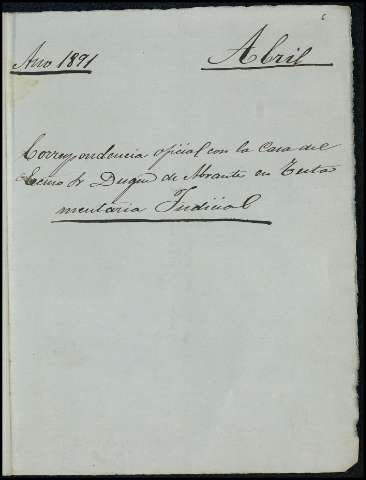 Año 1891 Abril
Correspondencia oficial con la Casa del
Excmo Sr Duque de Abrantes en Testa
mentaria Judicial